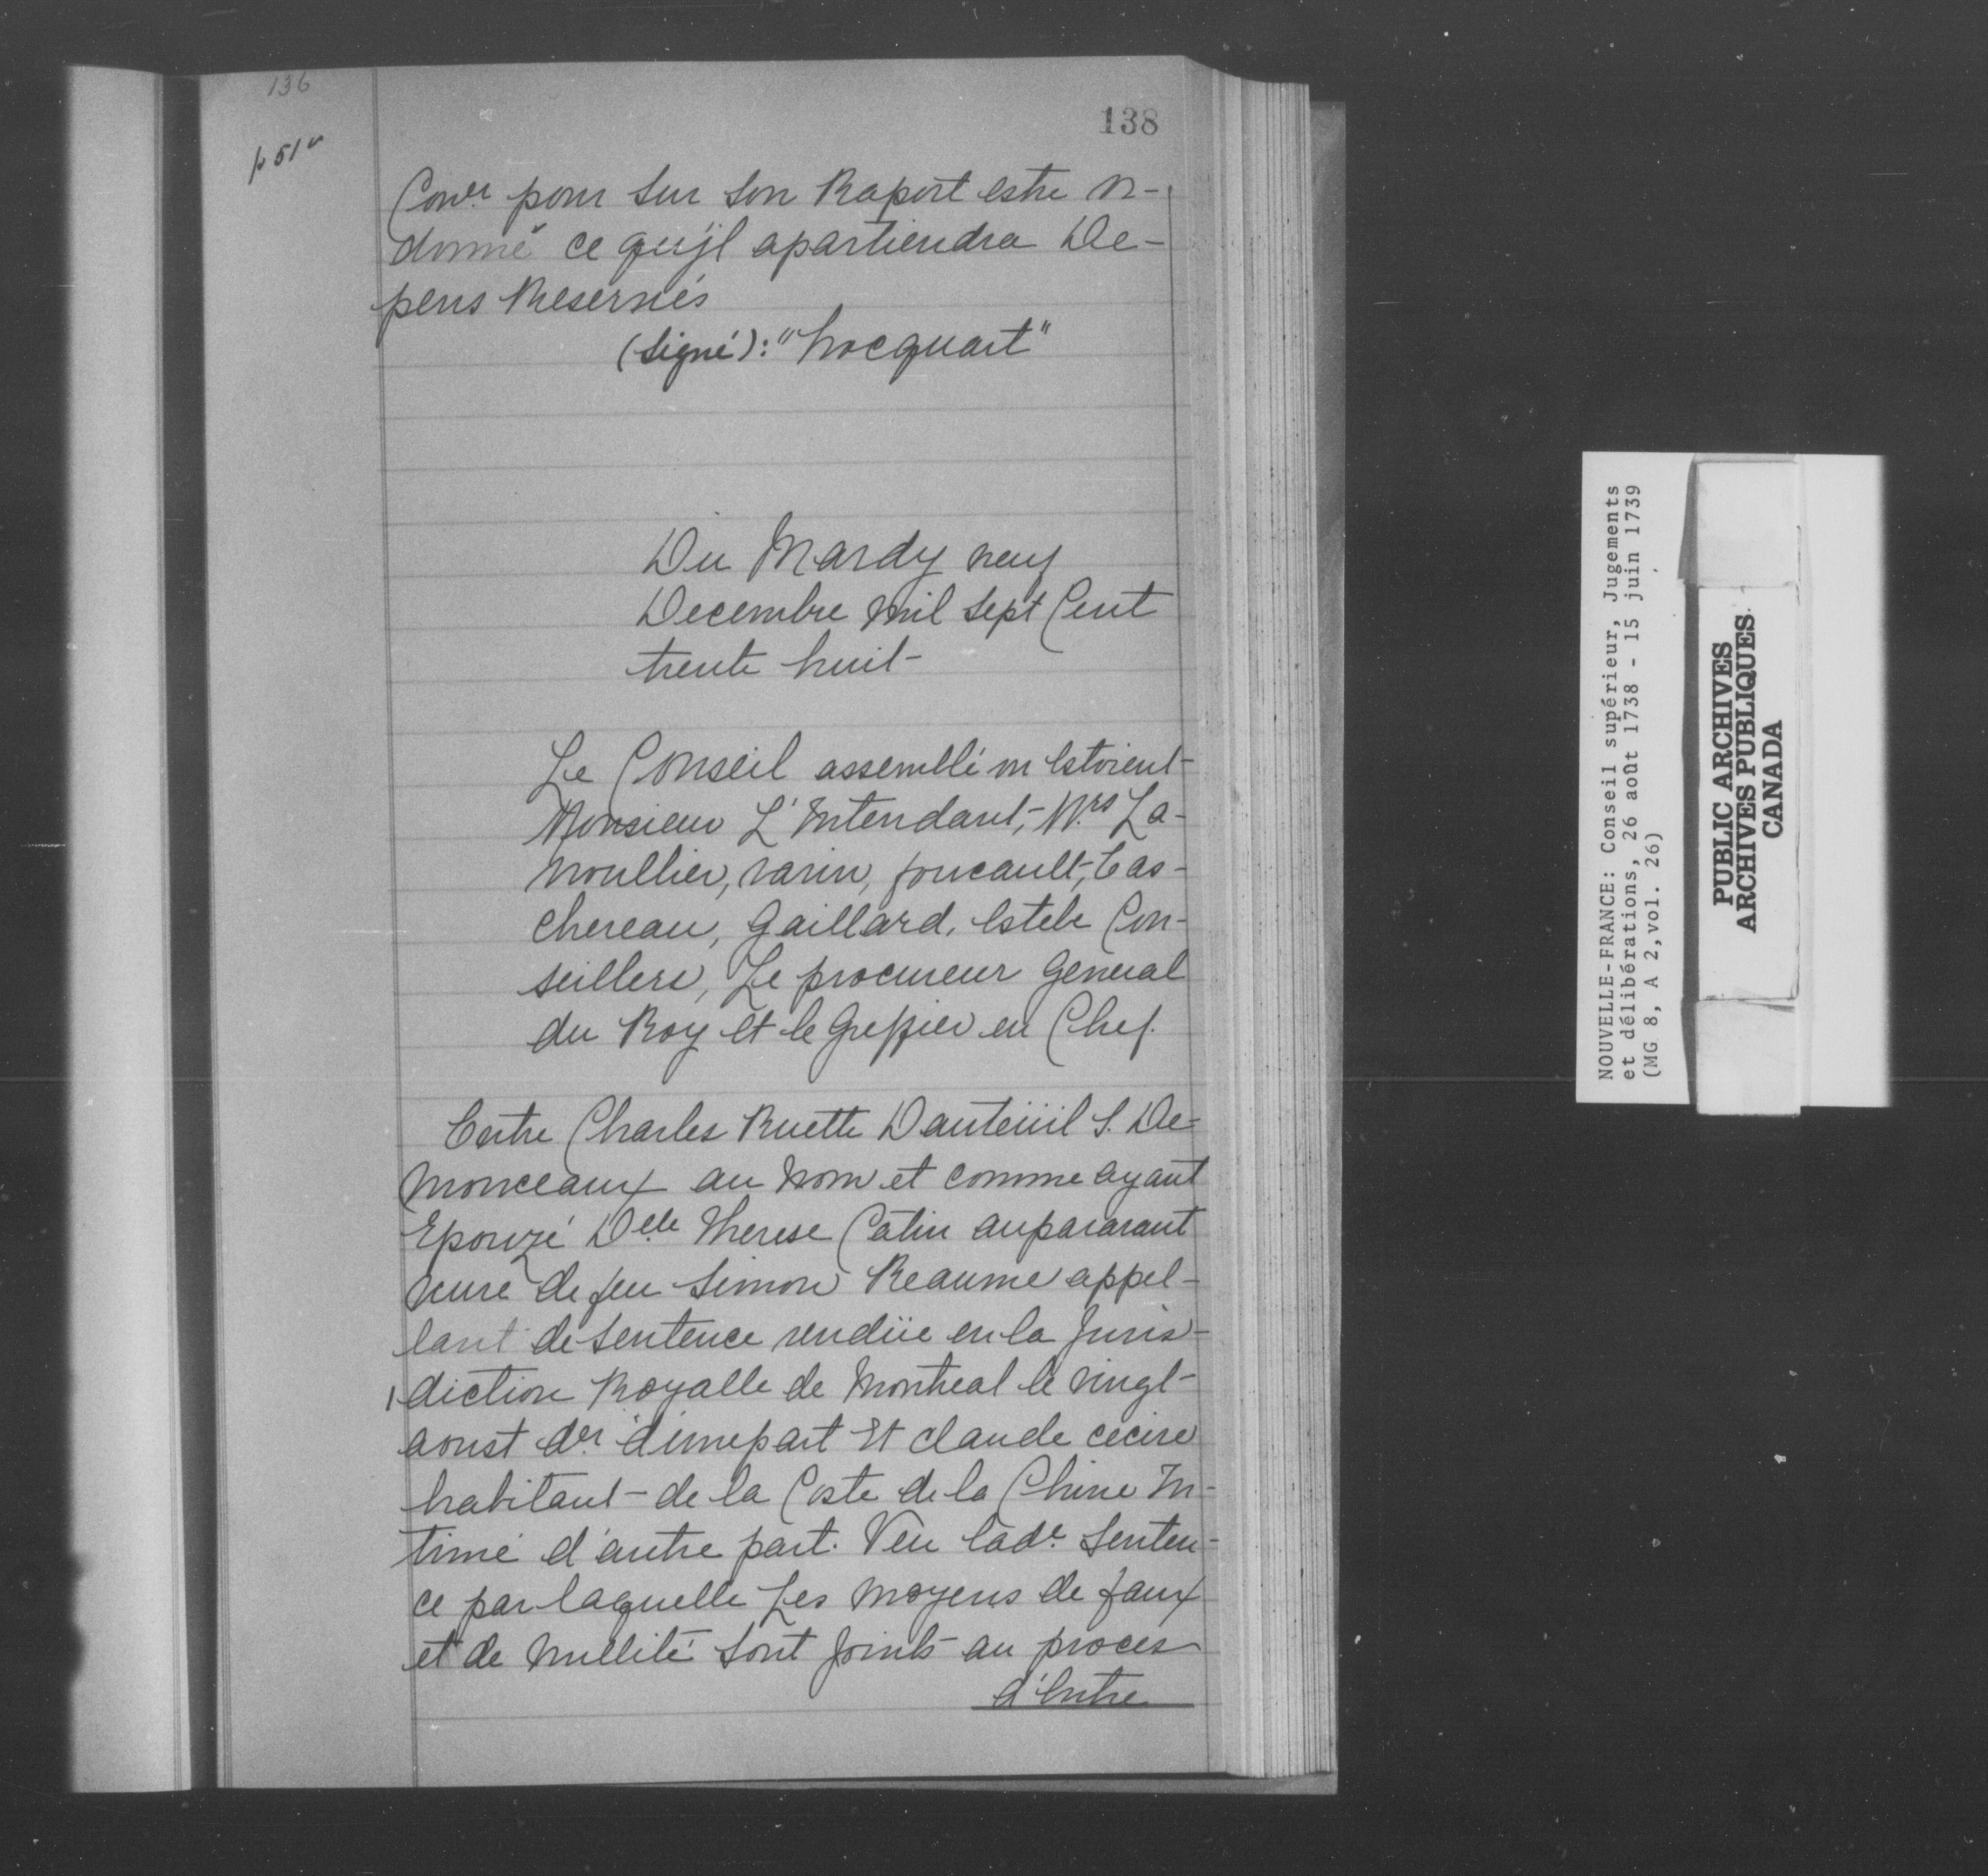 136
138
p 51 v
Conver pour sur son Raport estre or-
donné ce qu'jl apartiendra De-
pens Reservés
(signé): "hocquart"
Du Mardy neuf
Decembre mil sept Cent
trente huit
Le Conseil assemblé ou Estoient
Monsieur L'Intendant, Mrs La-
noullier, varin, foucault, tas-
chereau, Gaillard, Estebe Con-
seillers, Le procureur General
du Roy et le Greffier en Chef.
Entre Charles Ruette Dauteüil S. De
Monceaux au Nom et comme ayant
Epouzé Delle Therese Catin auparavant
veuve de feu Simon Reaume appel-
lant de sentence rendüe en la Juris-
diction Royalle de Montreal le vingt
aoust der d'unepart Et claude cecire
habitant de la Coste de la Chine In-
timé d'autre part. Veu lade Senten-
ce par laquelle Les moyens de faux
et de Nullité sont Joints au proces
d'Entre
NOUVELLE-FRANCE: Conseil supérieur, Jugements
et délibérations, 26 août 1738 - 15 juin 1739
(MG 8, A 2, vol. 26)
PUBLIC ARCHIVES
ARCHIVES PUBLIQUES
CANADA